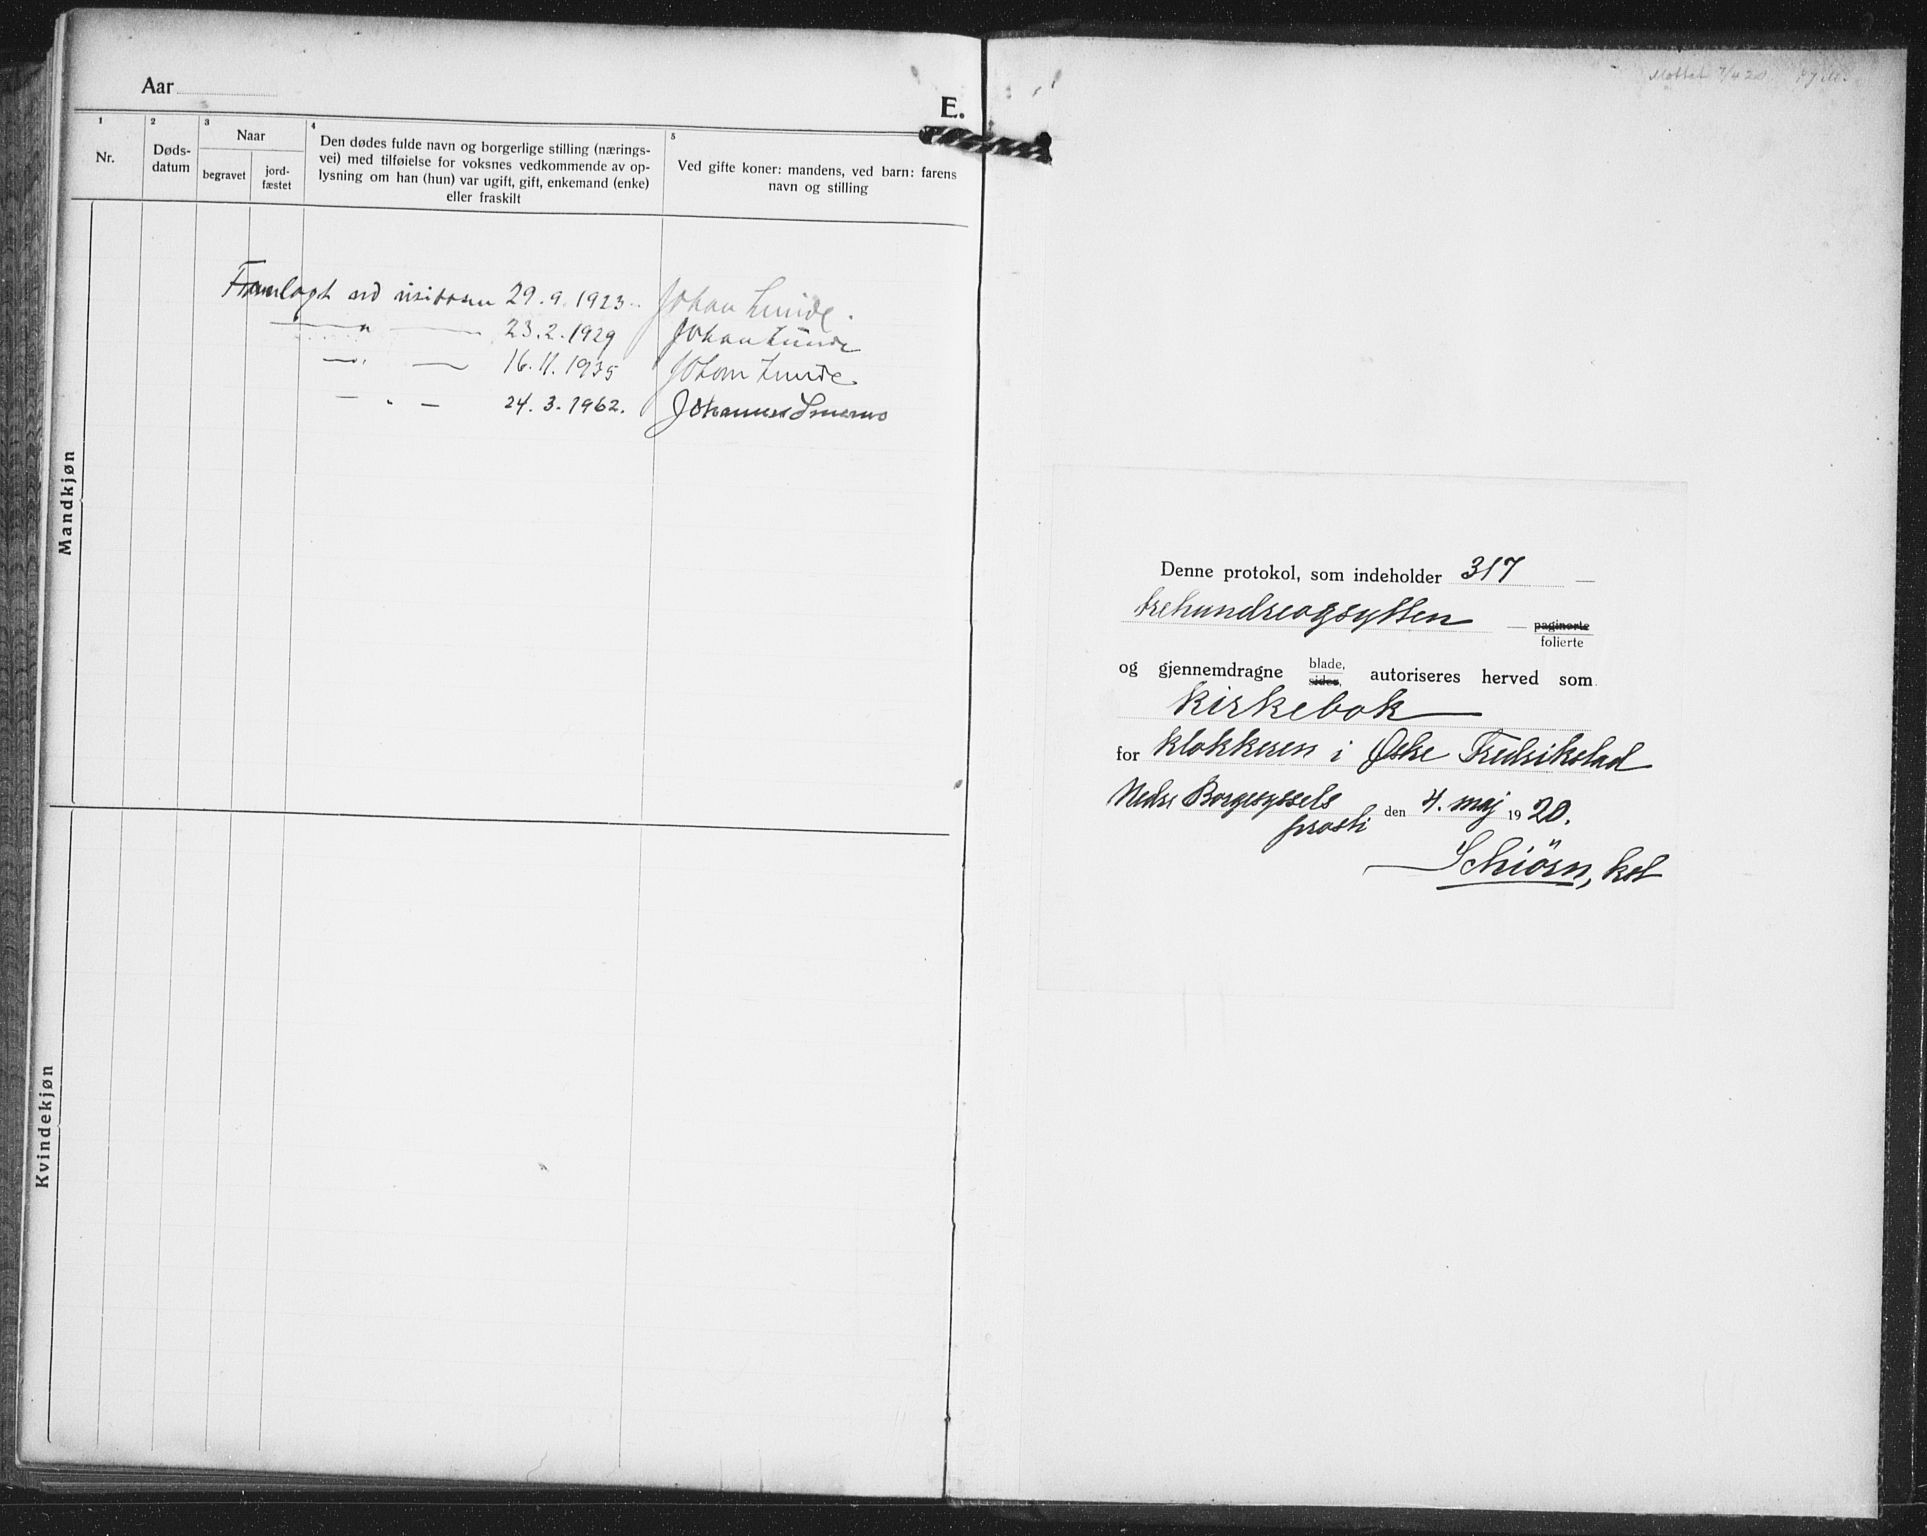 Aar
E.
1
2
3
4
5
Nr.
Døds-
datum
Naar
begravet
jord-
fæstet
Den dødes fulde navn og borgerlige stilling (nærings-
vei) med tilføielse for voksnes vedkommende av op-
lysning om han (hun) var ugift, gift, enkemand (enke)
eller fraskilt
Ved gifte koner: mandens, ved barn: farens
navn og stilling
Mandkjøn
Framlagt ved visitasen 29.9.1923. Johan Lunde.
— " — 23.2.1929 Johan Lunde
— " — 16.11.1935 Johan Lunde
— " — 24.3.1962. Johannes Smemo
Kvindekjøn
Mottat 7/4 20
Denne protokol, som indeholder 317 —
trehundreogsytten — paginerte
folierte
og gjennemdragne blade, sider, autoriseres herved som
kirkebok
for klokkeren i Østre Fredrikstad
Nedre Borgesyssels
prosti den 4. maj 1920.
Schiörn, kst